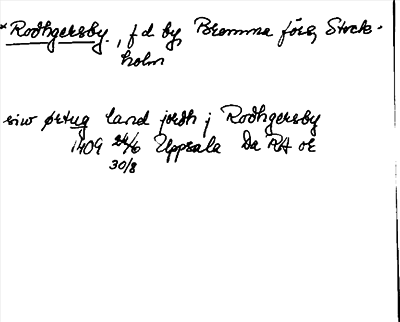 *Rodhgersby, f d by, Bromma förs, Stock-
holm
siw örtug land jordh j Rodhgersby
1409 24/6 Uppsala Da RA or
30/8